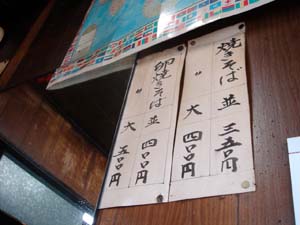 焼きそば 並 三五〇円
〃 大 四〇〇円
卵焼きそば 並 四〇〇円
〃 大 五〇〇円